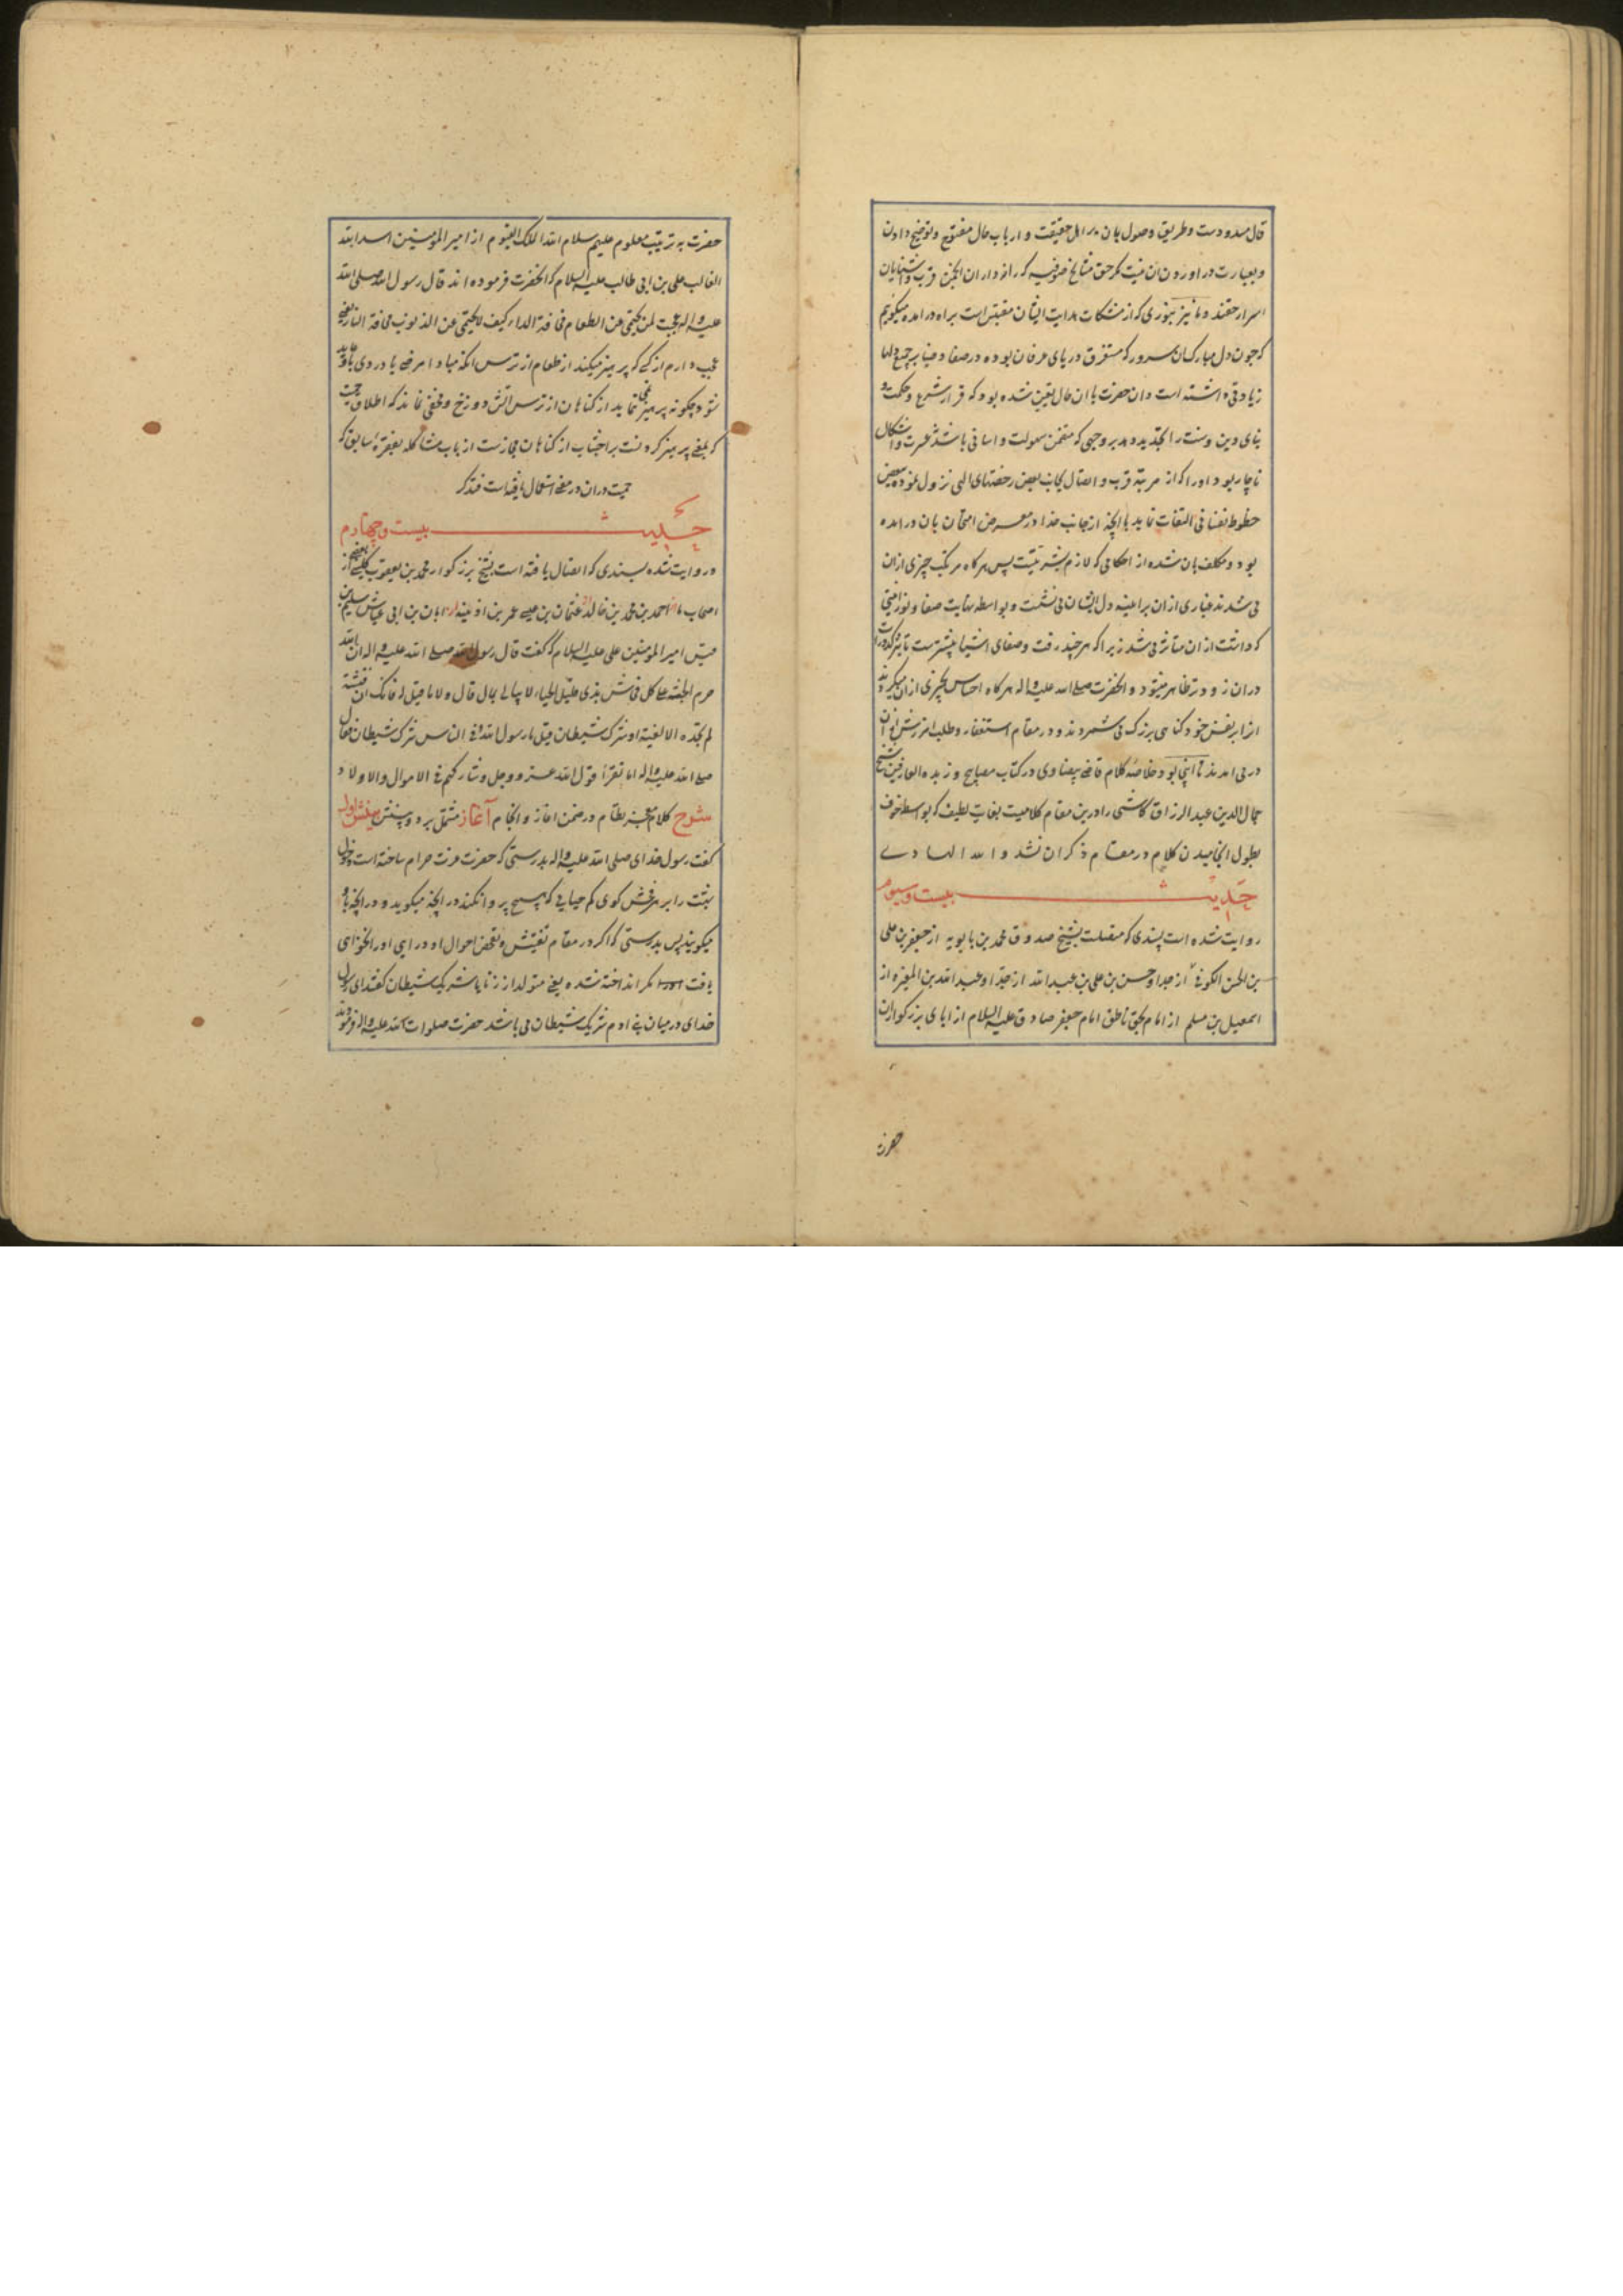 قال مسدودست و طریق وصول بان بر اهل حقیقت و ارباب حال مفتوح و توضیح دادن
و بعبارت در اوردن ان نیست مکر حق مشایخ صوفیه که رازداران انجمن قرب و اشنایان
اسرار حقند و ما نیز بنوری که از مشکات هدایت ایشان مقتبس است براه در امده میکوییم
که چون دل مبارک ان سرور که مستغرق دریای عرفان بوده در صفا و ضیا بر جمیع دلها
زیادتی داشته است و ان حضرت با ان حال تعین شده بود که قرار شرع و حکمت و
بنای دین و سنت را تجدید دهد بر وجهی که متضمن سهولت و اسانی باشد نه عسرت و اشکال
ناچار بود او را که از مرتبه قرب و اتصال بجانب بعض رخصتهای الهی نزول نموده ببعض
حظوظ نفسانی التفات نماید با انچه از جانب خدا در معرض امتحان بان در امده
بود و مکلف بان شده از احکامی که لازم بشریتست پس هرکاه مرتکب چیزی ازان
می شدند غباری ازان بر اینه دل ایشان می نشست و بواسطه نهایت صفا و نورانیتی
که داشت ازان متاثر می شد زیرا که هر چند رقت و صفای اشیا بیشترست تاثیر کدورات
دران زودتر ظاهر میشود و انحضرت صلی الله علیه و اله هرکاه احساس بچیزی ازان میکردند
انرا بر نفس خود کناهی بزرک می شمردند و در مقام استغفار و طلب امرزش ازان
در می امدند تا اینجا بود خلاصه کلام قاضی بیضاوی در کتاب مصابیح و زبده العارفین شیخ
جمال الدین عبد الرزاق کاشی را درین مقام کلامیست بغایت لطیف که بواسطه خوف
بطول انجامیدن کلام در مقام ذکر ان نشد و الله الهادی
حدیث بیست و سیوم
روایت شده است بسندی که متصلست بشیخ صدوق محمد بن بابویه از جعفر بن علی
بن الحسن الکوفی از جد او حسن بن علی بن عبد الله از جد او عبد الله بن المغیره از
اسمعیل بن مسلم از امام بحق ناطق امام جعفر صادق علیه السلام از ابای بزرکوار ان
حضرت
حضرت به ترتیب معلوم علیهم سلام الله الملک القیوم از امیر المؤمنین اسد الله
الغالب علی بن ابی طالب علیه السلام که انحضرت فرموده اند قال رسول الله صلی الله
علیه و اله عجبت لمن یحتمی عن الطعام مخافة الداء کیف لا یحتمی عن الذنوب مخافة النار یعنی
عجب دارم از کسی که پرهیز میکند از طعام از ترس انکه مبادا مرضی یا دردی باو عاید
شود چکونه پرهیز نمی نماید از کناهان از ترس اتش دوزخ و مخفی نماند که اطلاق حمیت
که بمعنی پرهیز کردنست بر اجتناب از کناهان مجازست از باب مشاکله بفقره سابق که
حمیت دران در معنی استعمال یافته است فتذکر
حدیث بیست و چهارم
روایت شده بسندی که اتصال یافته است بشیخ بزرکوار محمد بن یعقوب کلینی از بعضی
اصحاب ما از احمد بن محمد بن خالد از عثمان بن عیسی عمر بن اذینه از ابان بن ابی عیاش سلیم بن
قیس امیر المؤمنین علی علیه السلام که کفت قال رسول الله صلی الله علیه و اله ان الله
حرم الجنة علی کل فحاش بذی قلیل الحیاء لا یبالی بما قال و لا ما قیل له فانک ان فتشته
لم تجده الا لغیة او شرک شیطان قیل یا رسول الله و فی الناس شرک شیطان فقال
صلی الله علیه و اله اما تقرأ قول الله عز و جل و شارکهم فی الاموال و الاولاد
شرح کلام معجز نظام در ضمن اغاز و انجام آغاز مشتمل بر دو بینش بینش اول
کفت رسول خدای صلی الله علیه و اله بدرستی که حضرت عزت حرام ساخته است دخول
بهشت را بر هر فحش کوی کم حیایی که هیچ پروا نکند در انچه میکوید و در انچه باو
میکویند پس بدرستی که اکر در مقام تفتیش و تفحص احوال او در ایی او را نخواهی
یافت مکر انداخته شده یعنی متولد از زنا یا شریک شیطان کفتند ای رسول
خدای در میان بنی ادم شریک شیطان می باشد حضرت صلوات الله علیه و اله فرمودند